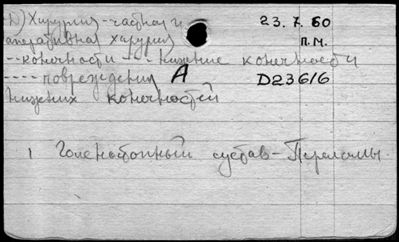 D) Хирургия - частная и 23.7.60
оперативная хирургия п.м.
-- конечности -- нижние конечности
---- повреждения А D23616
нижних конечностей
1 Голеностопный сустав - Переломы.